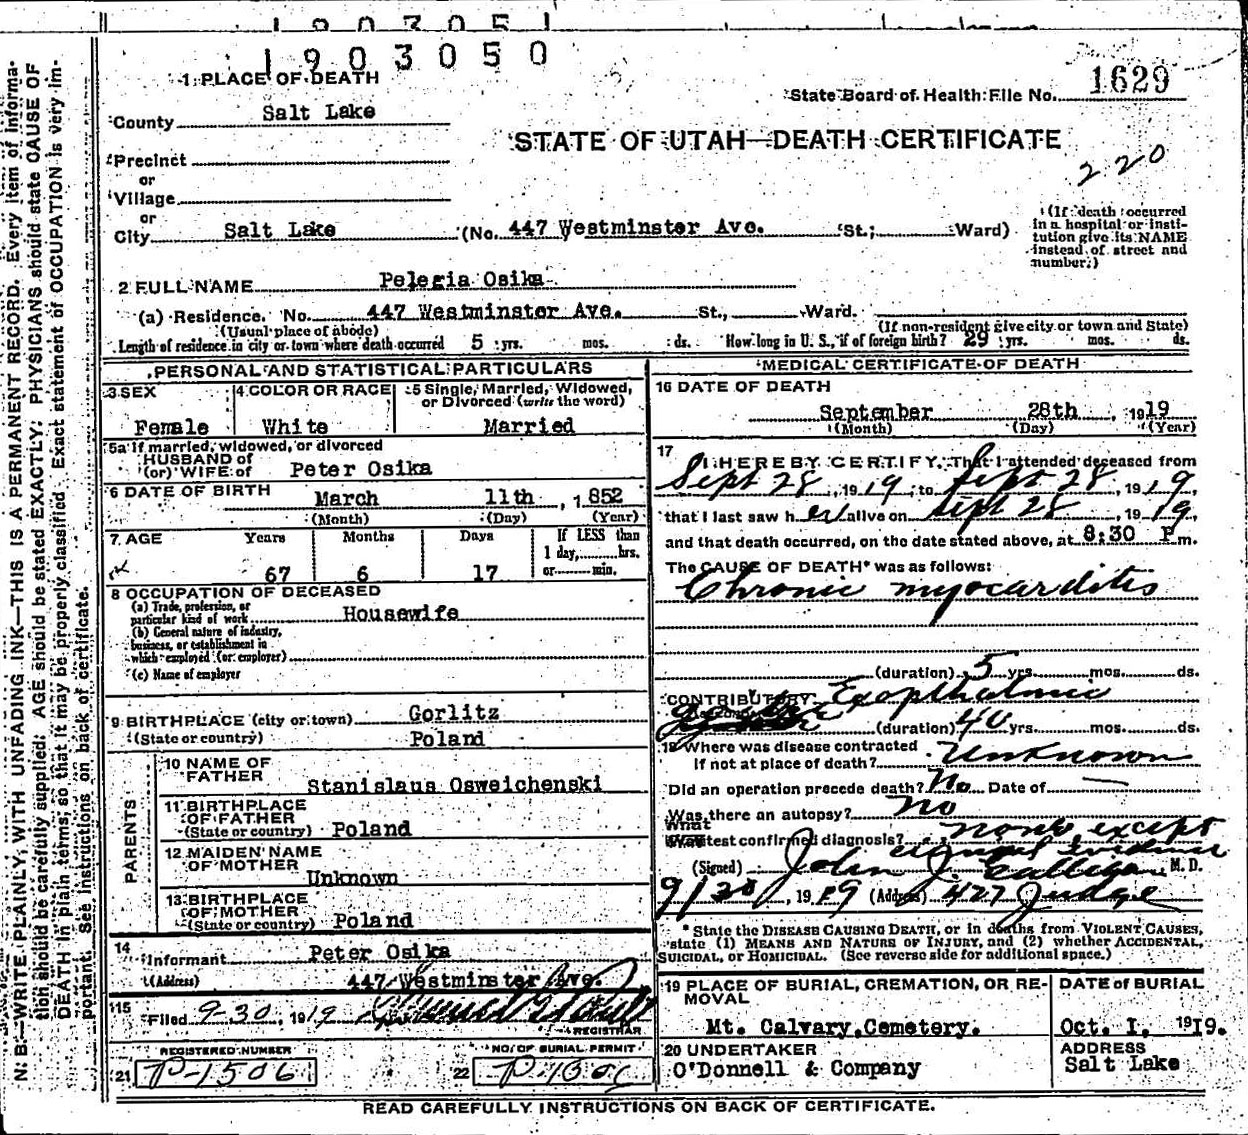 1903051
1903050
1 PLACE OF DEATH
State Board of Health File No. 1629
County Salt Lake
STATE OF UTAH—DEATH CERTIFICATE
Precinct
220
or
Village
or
City Salt Lake (No. 447 Westminster Ave. St.; Ward)
(If death occurred in a hospital or insti-
tution give its NAME
instead of street and
number.)
2 FULL NAME Pelegia Osika
(a) Residence. No. 447 Westminster Ave. St., Ward.
(Usual place of abode) (If non-resident give city or town and State)
Length of residence in city or town where death occurred 5 yrs. mos. ds. How long in U. S., if of foreign birth? 29 yrs. mos. ds.
PERSONAL AND STATISTICAL PARTICULARS
3 SEX 4 COLOR OR RACE 5 Single, Married, Widowed,
or Divorced (write the word)
Female White Married
5a If married, widowed, or divorced
HUSBAND of
(or) WIFE of Peter Osika
6 DATE OF BIRTH March 11th, 1852
(Month) (Day) (Year)
7 AGE Years Months Days If LESS than
1 day, hrs.
67 6 17 or min.
8 OCCUPATION OF DECEASED
(a) Trade, profession, or
particular kind of work Housewife
(b) General nature of industry,
business, or establishment in
which employed (or employer)
(c) Name of employer
9 BIRTHPLACE (city or town) Gorlitz
(State or country) Poland
PARENTS
10 NAME OF
FATHER Stanislaus Osweichenski
11 BIRTHPLACE
OF FATHER
(State or country) Poland
12 MAIDEN NAME
OF MOTHER
Unknown
13 BIRTHPLACE
OF MOTHER
(State or country) Poland
14
Informant Peter Osika
(Address) 447 Westminster Ave.
15
Filed 9-30, 1919
REGISTRAR
REGISTERED NUMBER NO. OF BURIAL PERMIT
21 P-1506 22
MEDICAL CERTIFICATE OF DEATH
16 DATE OF DEATH
September 28th, 1919
(Month) (Day) (Year)
17
I HEREBY CERTIFY, That I attended deceased from
Sept 28, 1919, to Sept 28, 1919
that I last saw her alive on Sept 28, 1919
and that death occurred, on the date stated above, at 8:30 P m.
The CAUSE OF DEATH* was as follows:
Chronic myocarditis
(duration) 5 yrs. mos. ds.
CONTRIBUTORY Exopthalmic
(duration) 40 yrs. mos. ds.
18 Where was disease contracted
If not at place of death? Unknown
Did an operation precede death? No Date of —
Was there an autopsy? No
What test confirmed diagnosis? none except
evidence
(Signed) John J. Galligan M. D.
9/30, 1919 (Address) 427 Judge
* State the DISEASE CAUSING DEATH, or in deaths from VIOLENT CAUSES,
state (1) MEANS AND NATURE OF INJURY, and (2) whether ACCIDENTAL,
SUICIDAL, or HOMICIDAL. (See reverse side for additional space.)
19 PLACE OF BURIAL, CREMATION, OR RE-
MOVAL
Mt. Calvary Cemetery.
DATE of BURIAL
Oct. I. 1919.
20 UNDERTAKER
O'Donnell & Company
ADDRESS
Salt Lake
READ CAREFULLY INSTRUCTIONS ON BACK OF CERTIFICATE.
N. B.—WRITE PLAINLY, WITH UNFADING INK—THIS IS A PERMANENT RECORD. Every item of informa-
tion should be carefully supplied. AGE should be stated EXACTLY. PHYSICIANS should state CAUSE OF
DEATH in plain terms, so that it may be properly classified. Exact statement of OCCUPATION is very im-
portant. See instructions on back of certificate.